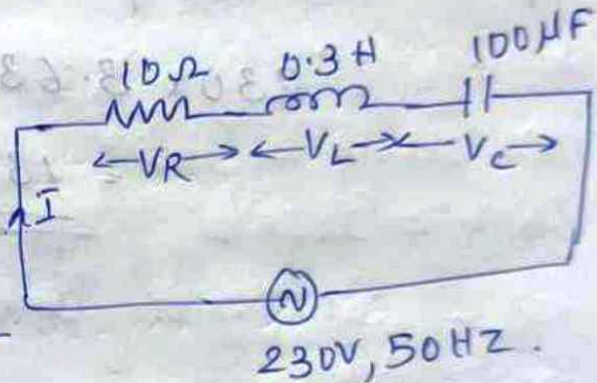 10Ω 0.3H 100μF
VR VL VC
I
230V, 50HZ.